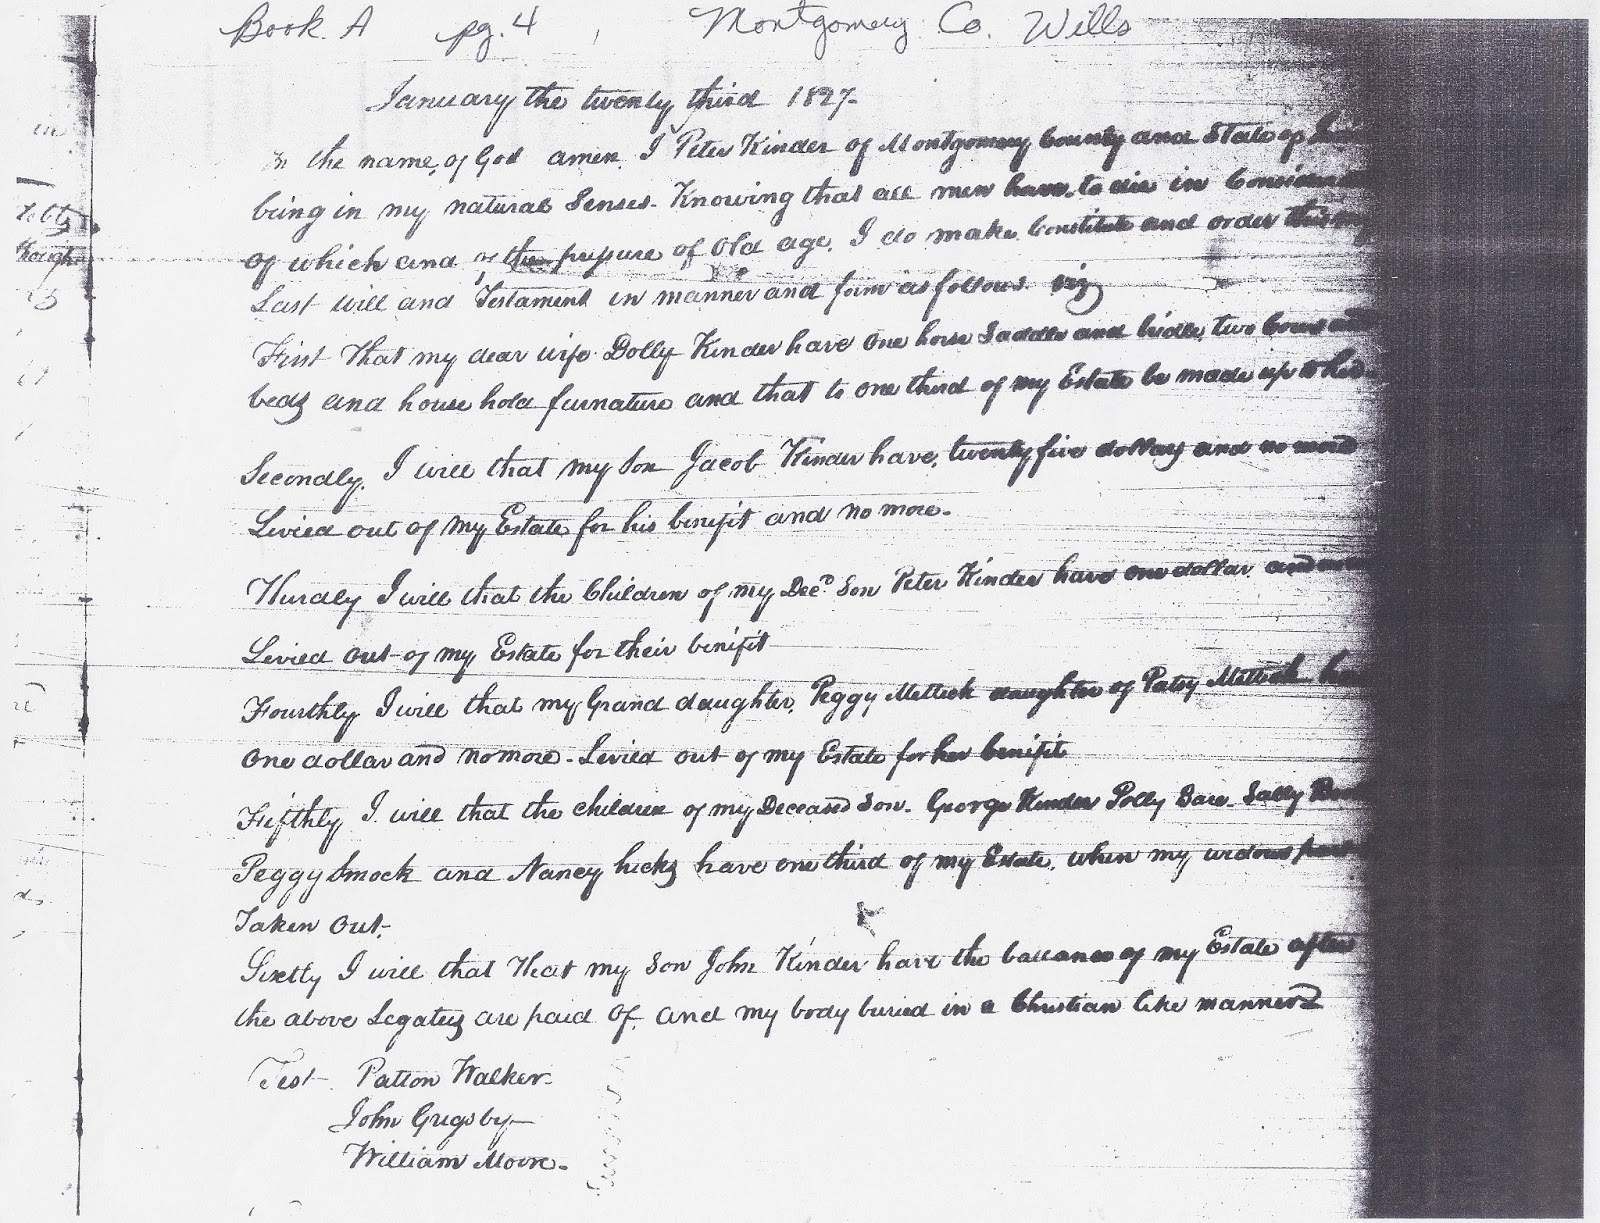 Book. A pg. 4 Montgomery Co. Wills
January the twenty third 1827-
In the name, of God amen. I Peter Kinder of Montgomery County and State of
being in my natural Senses. Knowing that all men have to die in
of which and of the presure of Old age. I do make Constitute and order this my
Last will and Testament in manner and form as follows. viz
First That my dear wife Dolly Kinder have one horse Saddle and bridle, two Cows and
beds and house hold furnature and that to one third of my Estate be made up to
Secondly. I will that my Son Jacob Kinder have, twenty five dollars and no more
Levied out of my Estate for his benifit and no more.
Thirdly I will that the Children of my Decd Son Peter Kinder have one dollar and
Levied out of my Estate for their benifit
Fourthly I will that my Grand daughter, Peggy Mettick daughter of Patsy Mettick have
One dollar and no more - Levied out of my Estate for her benifit
Fifthly I will that the children of my Deceased Son. George Kinder Polly Bare Sally
Peggy Smock and Nancy hicks have one third of my Estate. when my widows part
Taken out.
Sixtly I will that that my Son John Kinder have the ballance of my Estate after
the above Legatees are paid of. and my body buried in a Christian like manner
Test Patton Walker.
John Grigsby
William Moore.